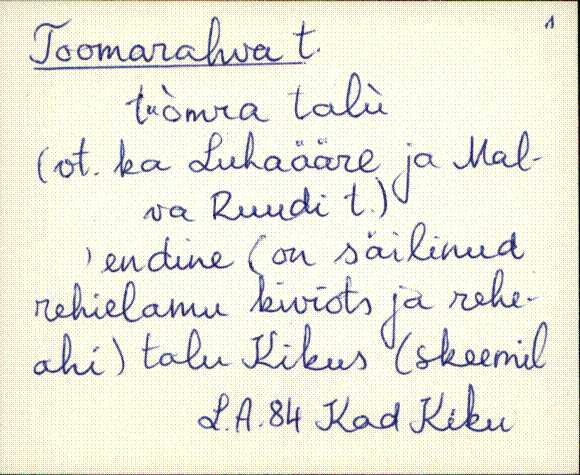 1
Toomarahva t.
tuòmra talù
(vt. ka Luhaääre ja Mal-
va Ruudi t.)
'endine (on säilinud
rehielamu kiviots ja rehe-
ahi) talu Kikus (skeemil
L.A. 84 Kad Kiku